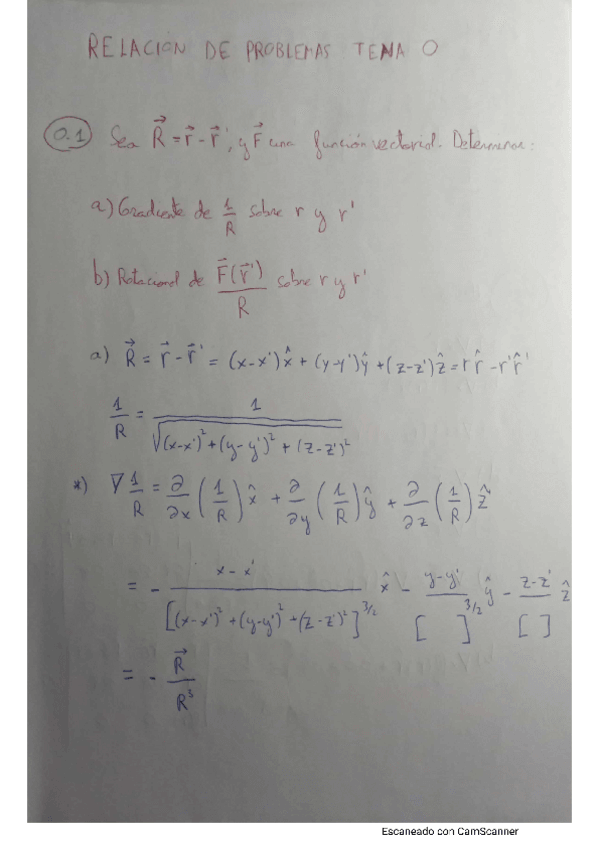 RELACIÓN DE PROBLEMAS TEMA 0
0.1 Sea R⃗ = r⃗ - r⃗', y F⃗ una función vectorial. Determinar:
a) Gradiente de 1/R sobre r y r'
b) Rotacional de F⃗(r⃗')/R sobre r y r'
a) R⃗ = r⃗ - r⃗' = (x-x')x̂ + (y-y')ŷ + (z-z')ẑ = r r̂ - r' r̂'
1/R = 1/√((x-x')² + (y-y')² + (z-z')²)
*) ∇ 1/R = ∂/∂x (1/R) x̂ + ∂/∂y (1/R) ŷ + ∂/∂z (1/R) ẑ
= - (x-x')/[(x-x')² + (y-y')² + (z-z')²]^3/2 x̂ - (y-y')/[ ]^3/2 ŷ - (z-z')/[ ] ẑ
= - R⃗/R³
Escaneado con CamScanner